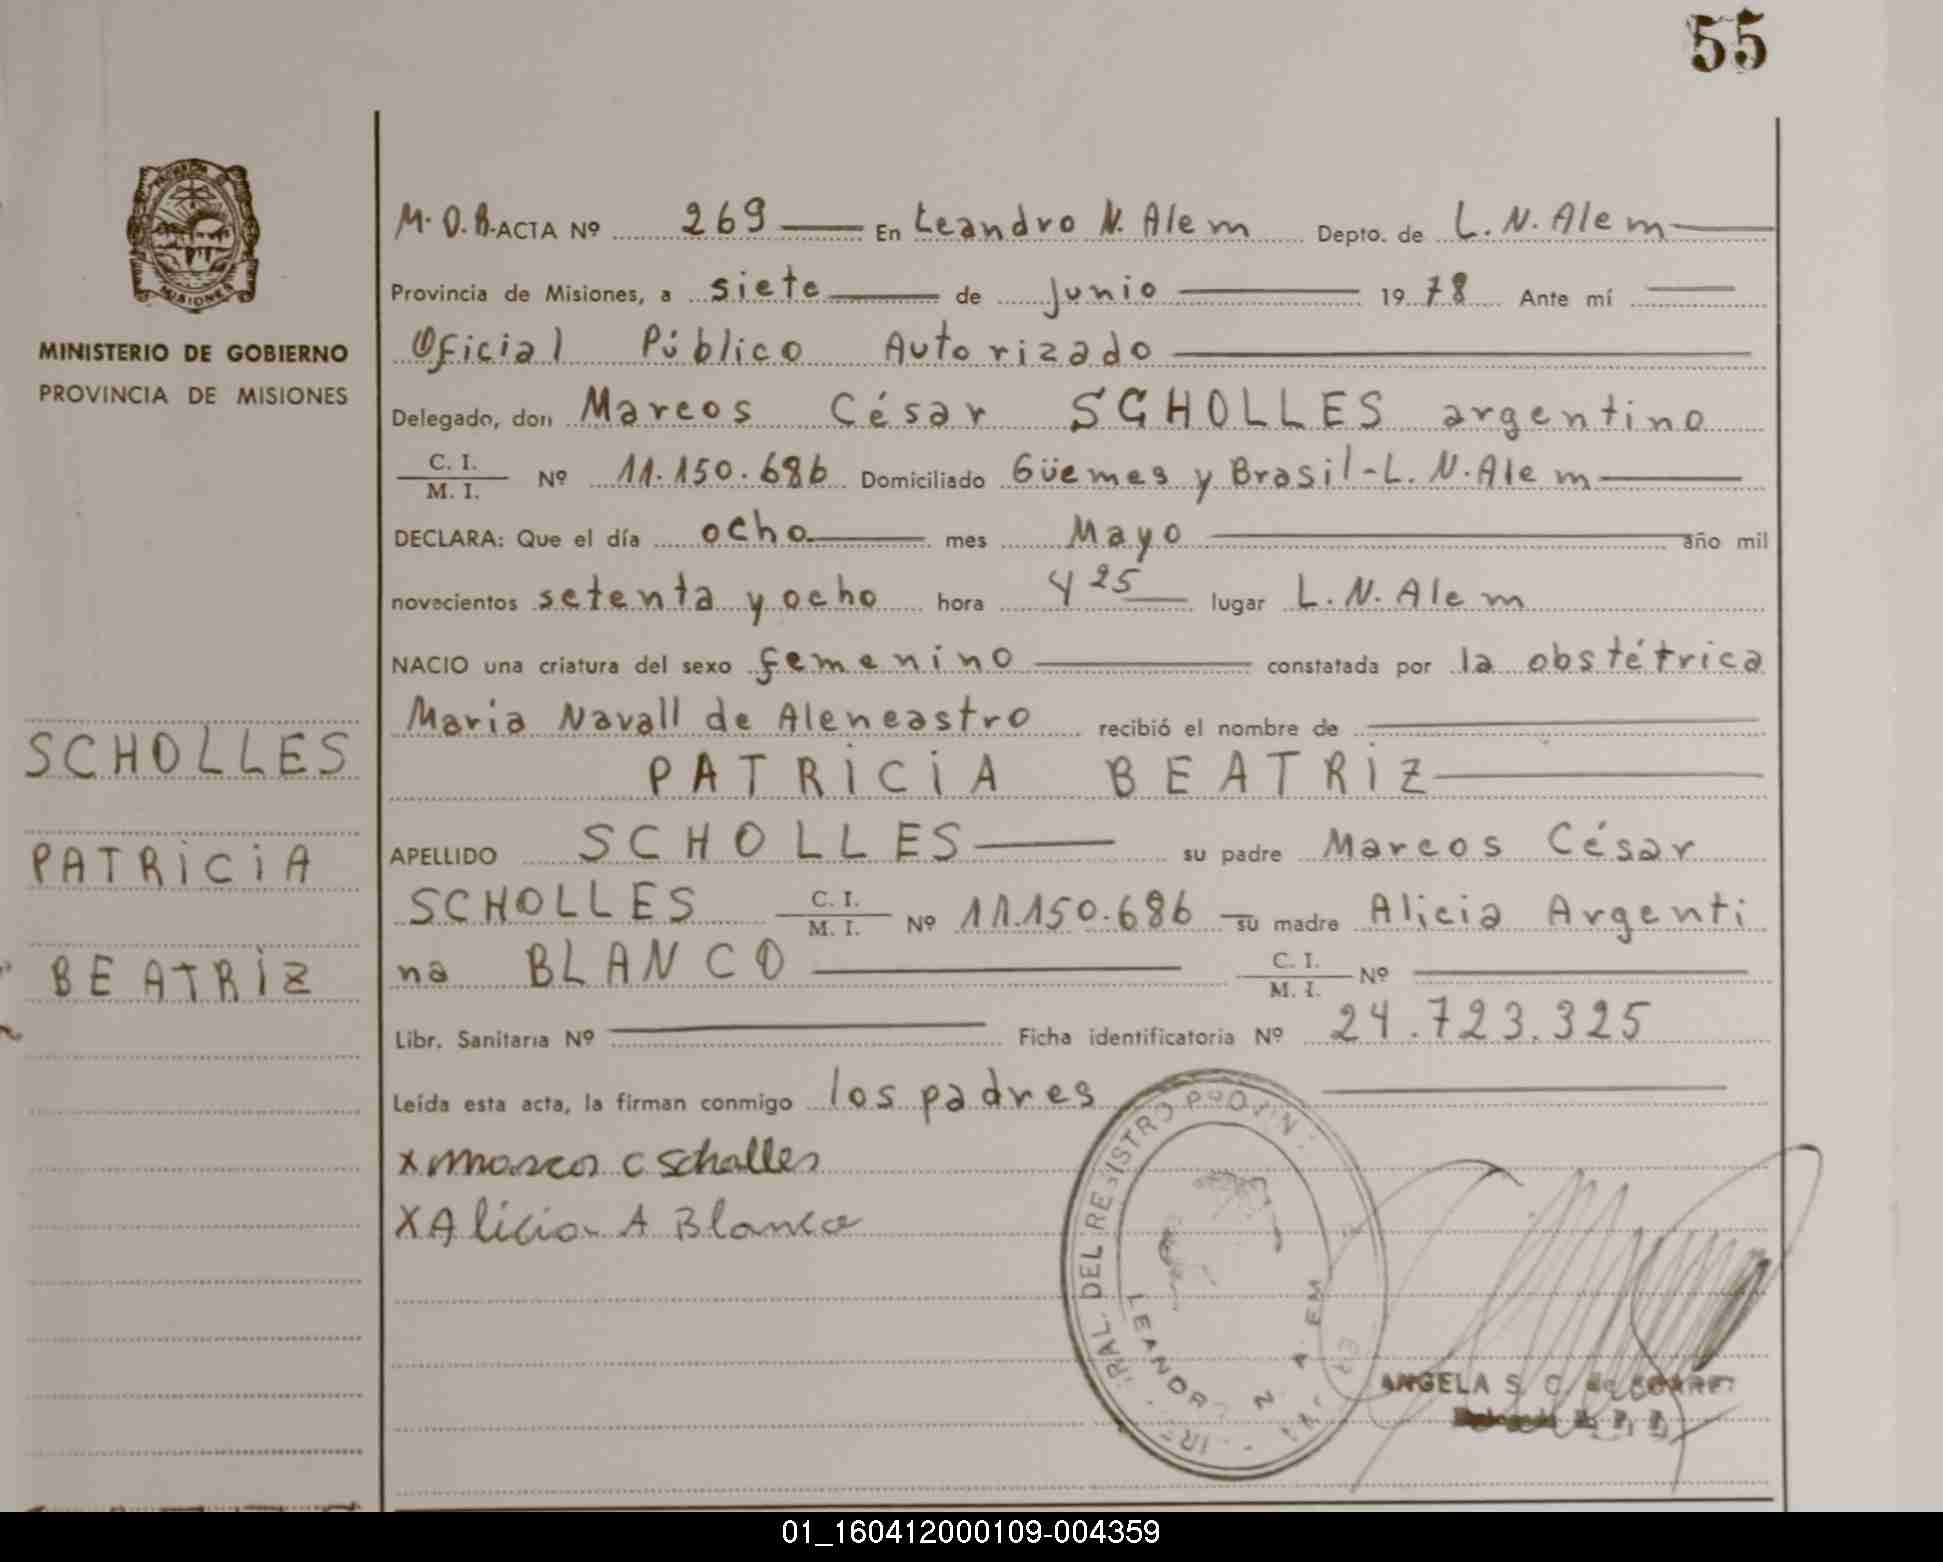 55
MINISTERIO DE GOBIERNO
PROVINCIA DE MISIONES
SCHOLLES
PATRICIA
BEATRIZ
M.D.B. ACTA Nº 269 En Leandro N. Alem Depto. de L. N. Alem
Provincia de Misiones, a siete de junio 1978 Ante mí
Oficial Público Autorizado
Delegado, don Marcos César SCHOLLES argentino
C. I.
M. I. Nº 11.150.686 Domiciliado Güemes y Brasil-L. N. Alem
DECLARA: Que el día ocho mes Mayo año mil
novecientos setenta y ocho hora 4 25 lugar L. N. Alem
NACIO una criatura del sexo femenino constatada por la obstétrica
Maria Navall de Aleneastro recibió el nombre de
PATRICIA BEATRIZ
APELLIDO SCHOLLES su padre Marcos César
SCHOLLES C. I. M. I. Nº 11.150.686 su madre Alicia Argenti
na BLANCO C. I. M. I. Nº
Libr. Sanitaria Nº Ficha identificatoria Nº 24.723.325
Leída esta acta, la firman conmigo los padres
x Marcos C Scholles
X Alicia A Blanco
DEL REGISTRO
ANGELA S. C. de
01_160412000109-004359